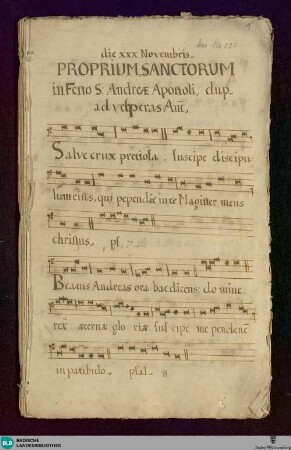 die xxx Novembris.
PROPRIUM SANCTORUM
in Festo S. Andreæ Apostoli, dup.
ad vesperas Añt,
Salve crux pretiosa, suscipe discipu
lum eius, qui pependit in te Magister meus
christus. ps. 7.
Beatus Andreas ora bat dicens: do mine
rex æternæ glo riæ sus cipe me pendentē
in patibulo. psal. 8
BLB BADISCHE
LANDESBIBLIOTHEK
Baden-Württemberg